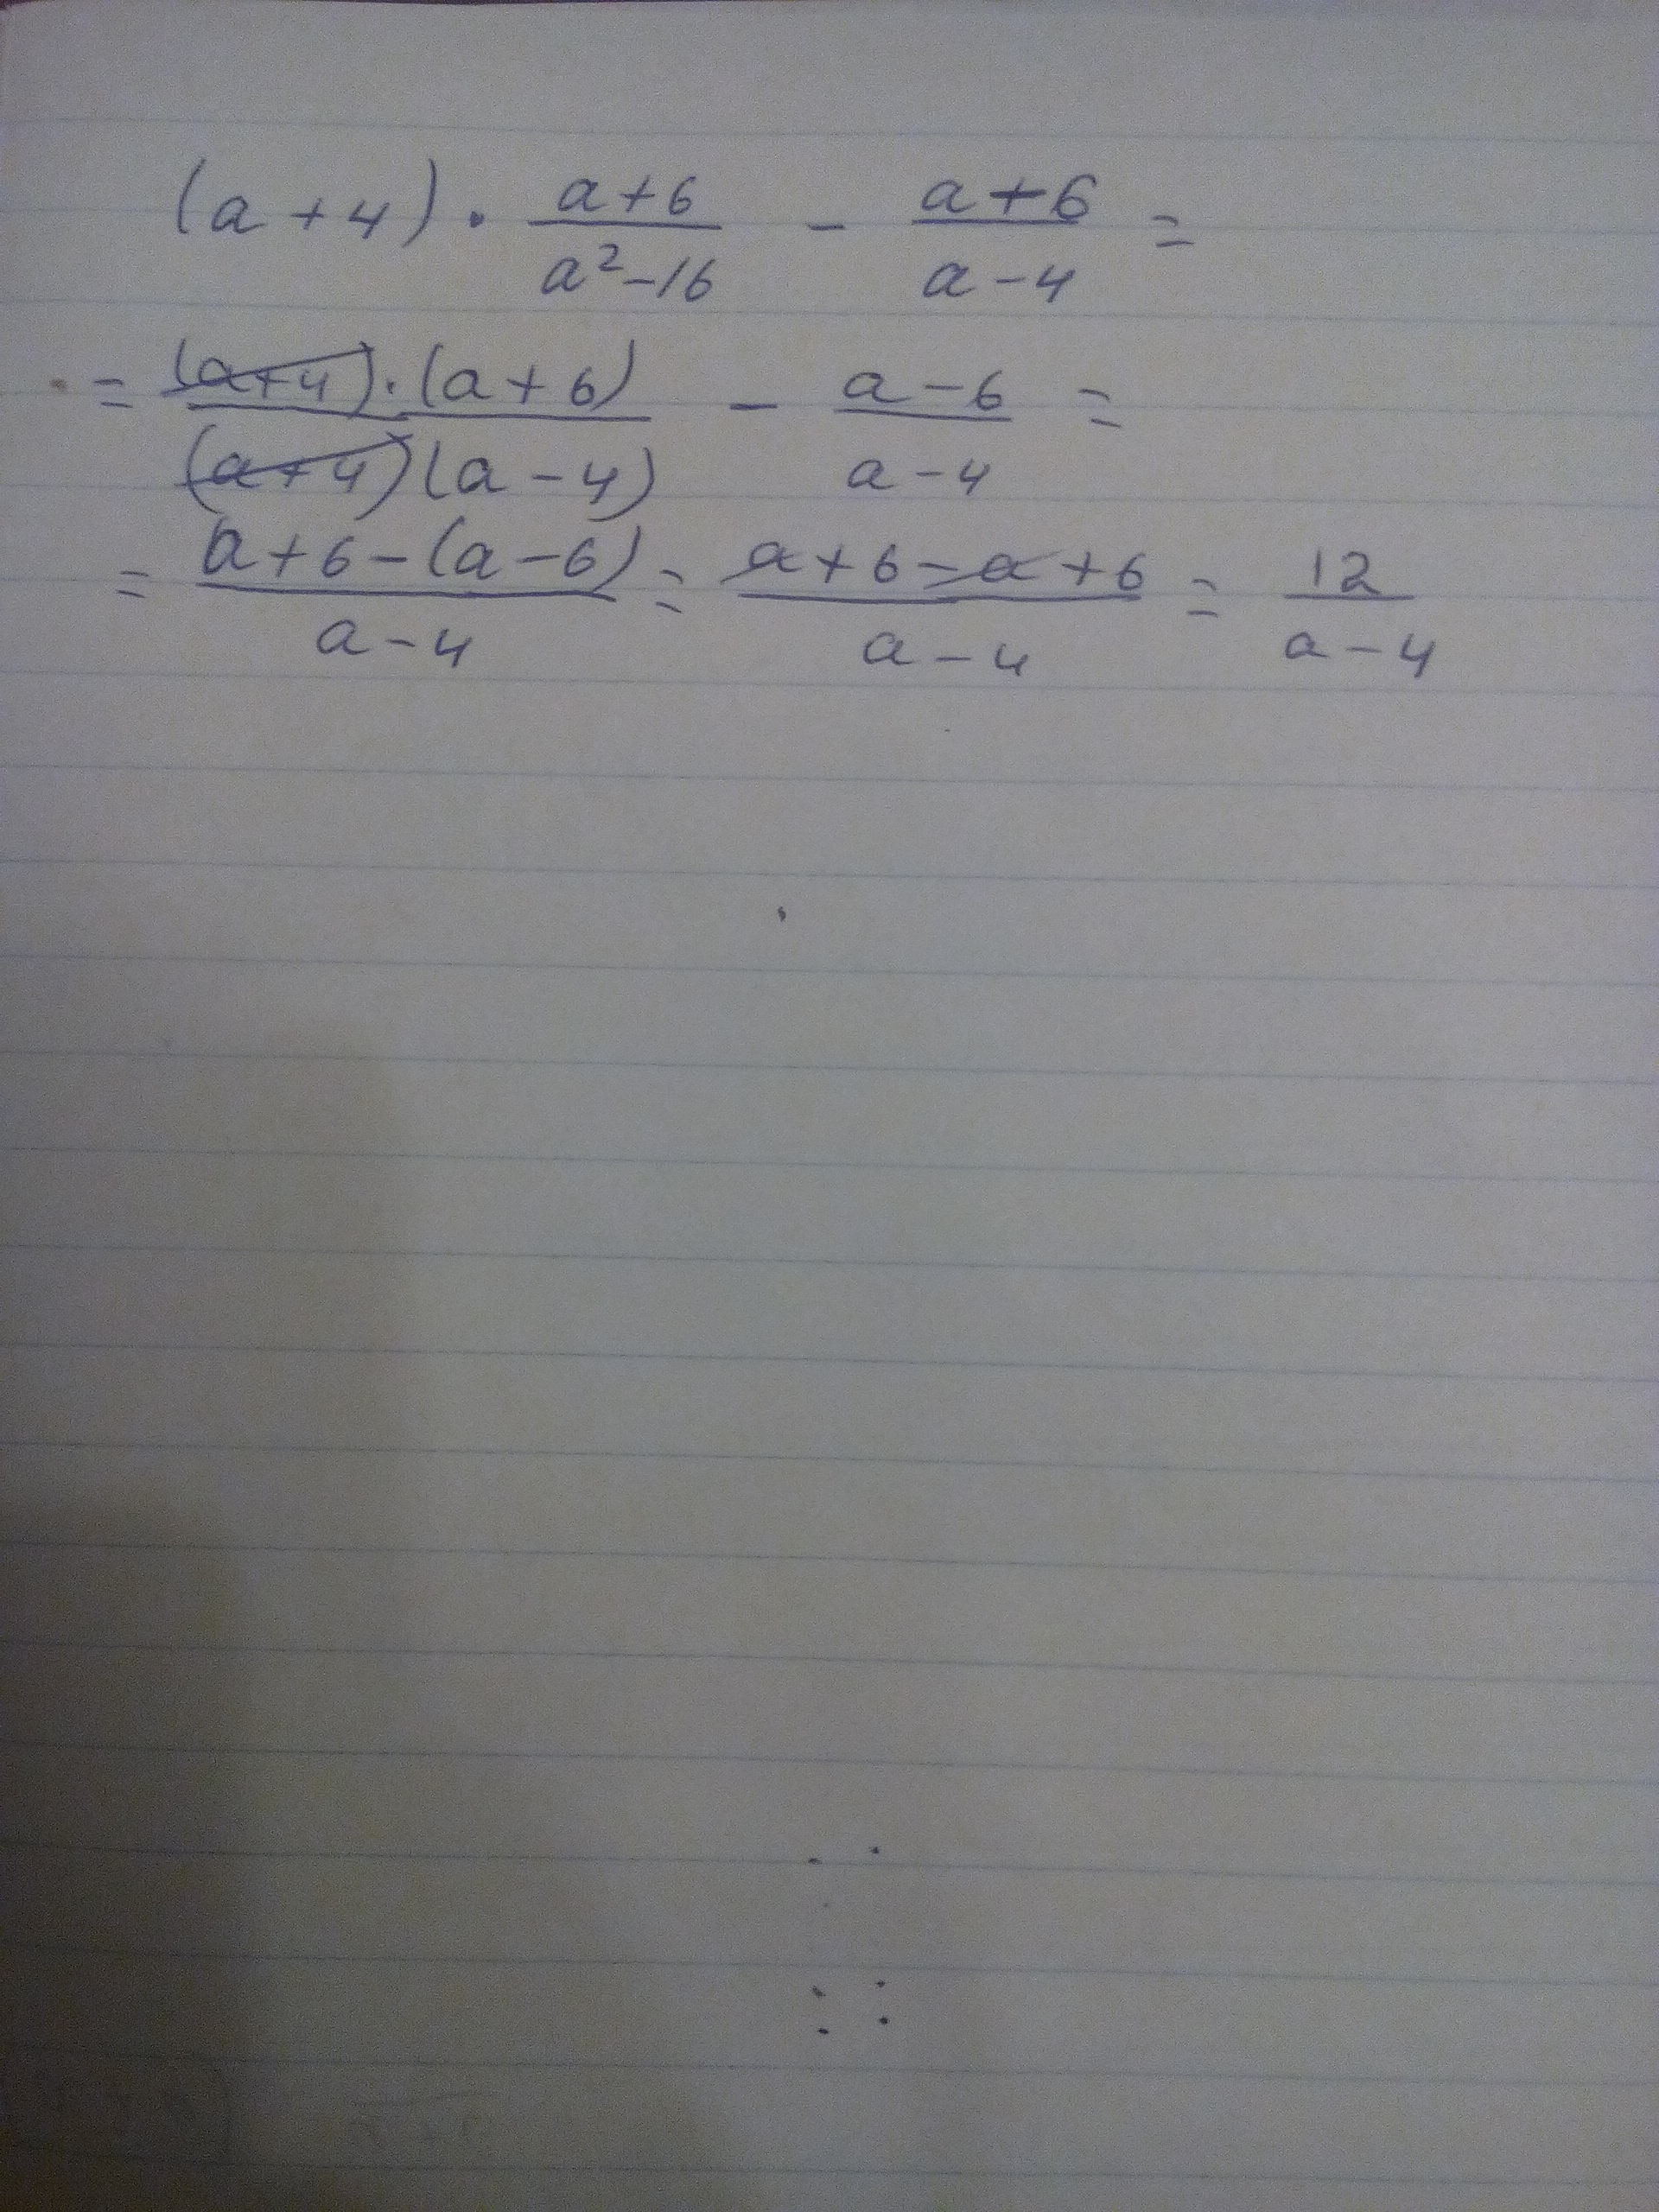 (a + 4) · (a+6)/(a²-16) - (a+6)/(a-4) =
= ((a+4)·(a+6))/((a+4)(a-4)) - (a-6)/(a-4) =
= (a+6-(a-6))/(a-4) = (a+6-a+6)/(a-4) = 12/(a-4)